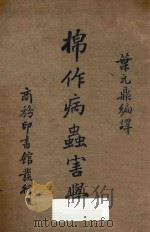 葉元鼎編譯
棉作病蟲害學
商務印書館發行